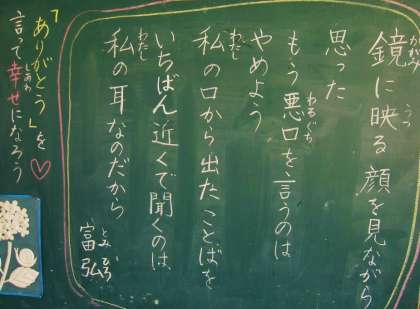 鏡に映る顔を見ながら
思った
もう悪口を言うのは
やめよう
私の口から出たことばを
いちばん近くで聞くのは
私の耳なのだから
富弘
「ありがとう」を
言って幸せになろう♡